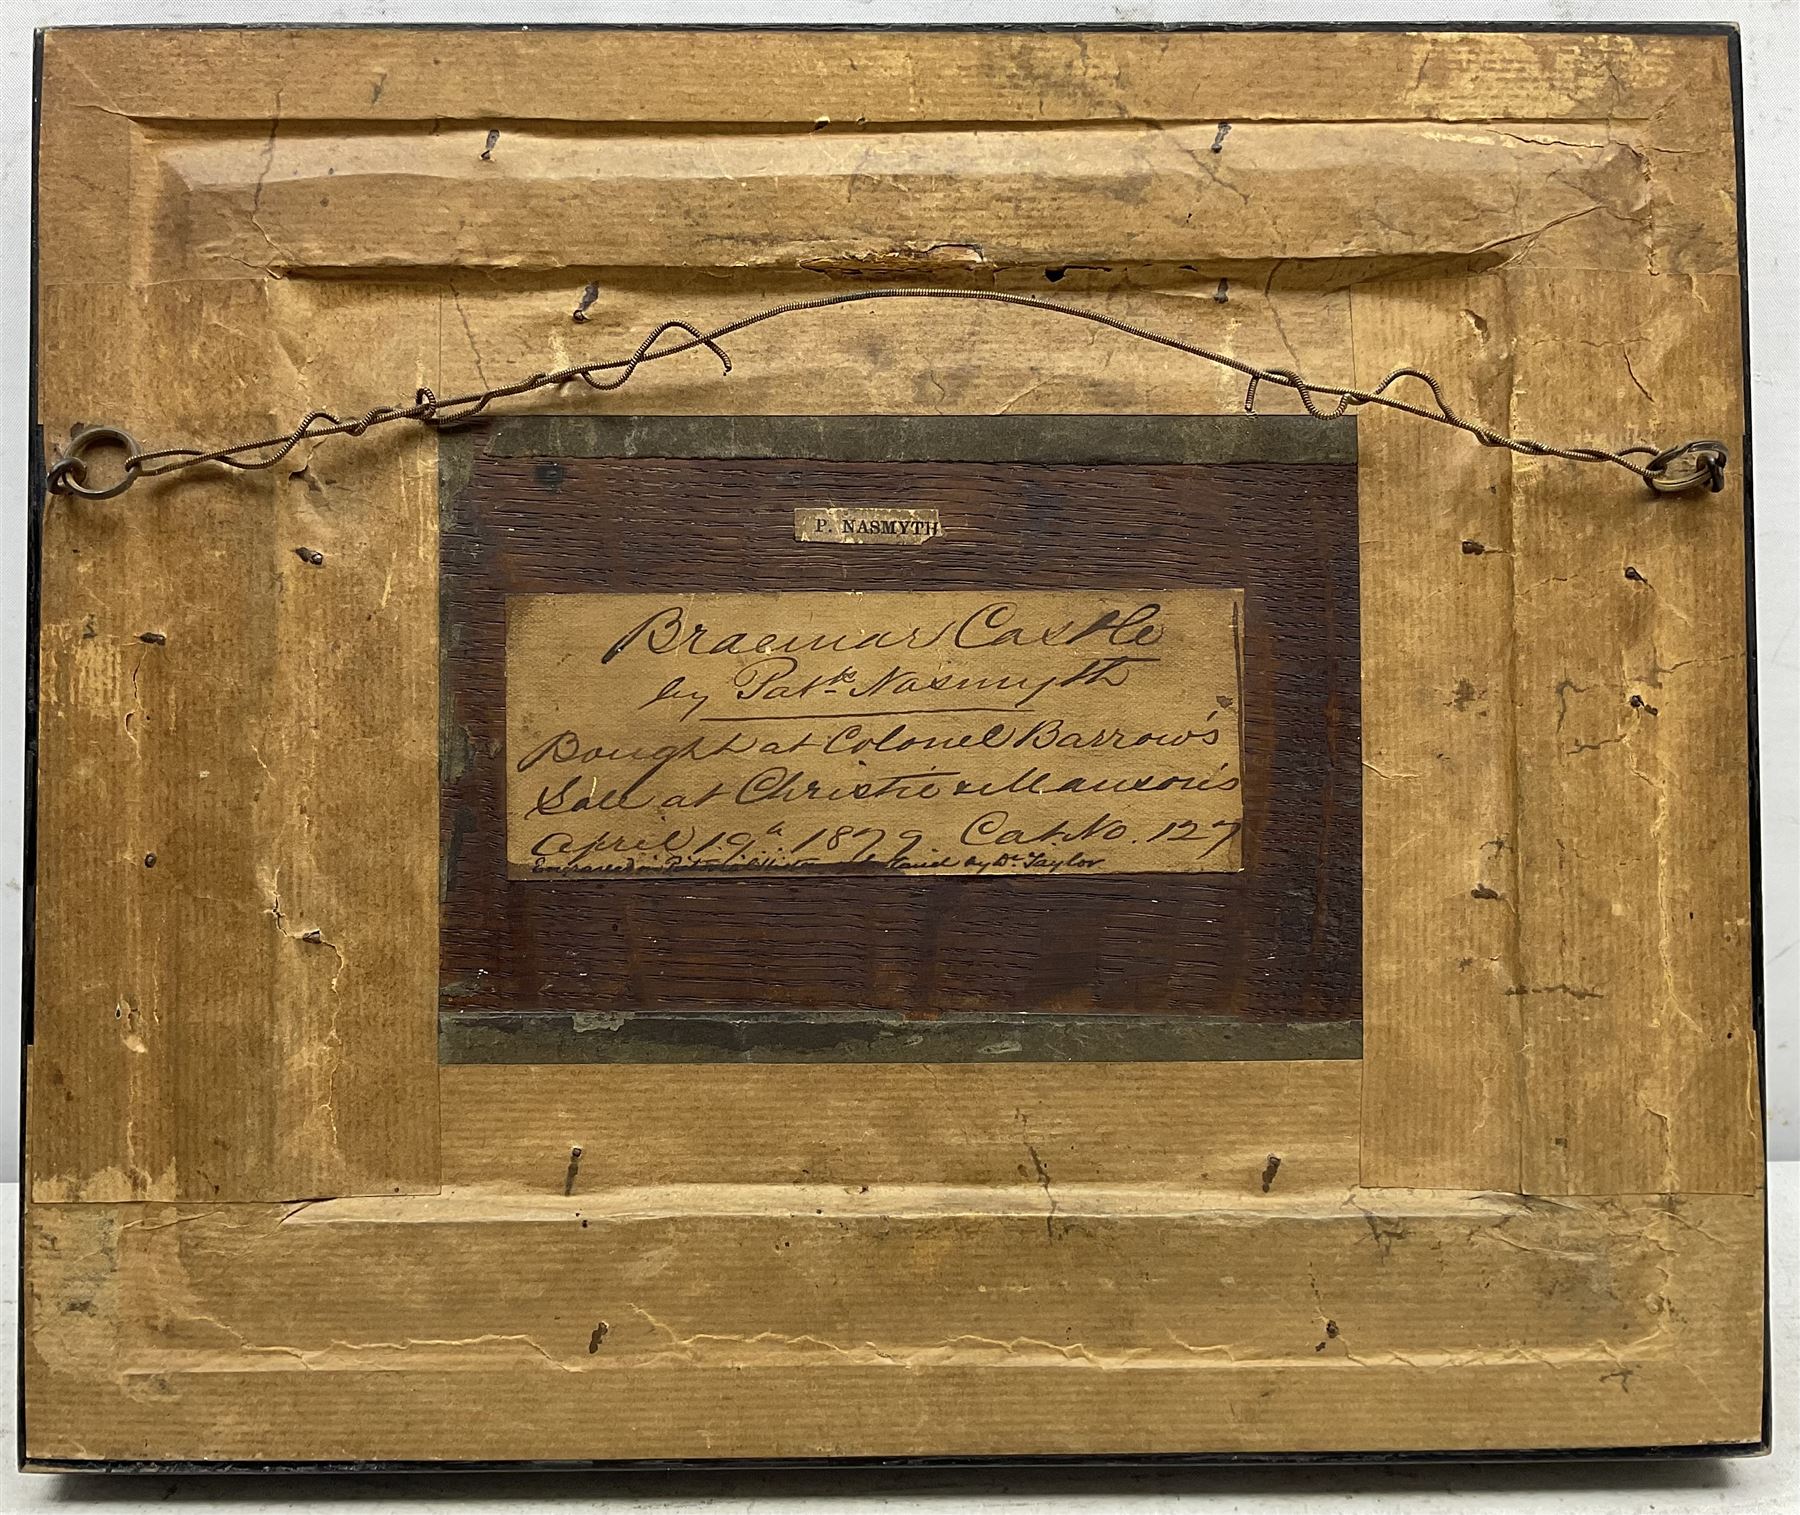 P. NASMYTH
Braemar Castle
by Patk. Nasmyth
Bought at Colonel Barrow's
Sale at Christie & Manson's
April 19th 1879 Cat. No. 127
Engraved in Pictorial History of Scotland by Dr. Taylor